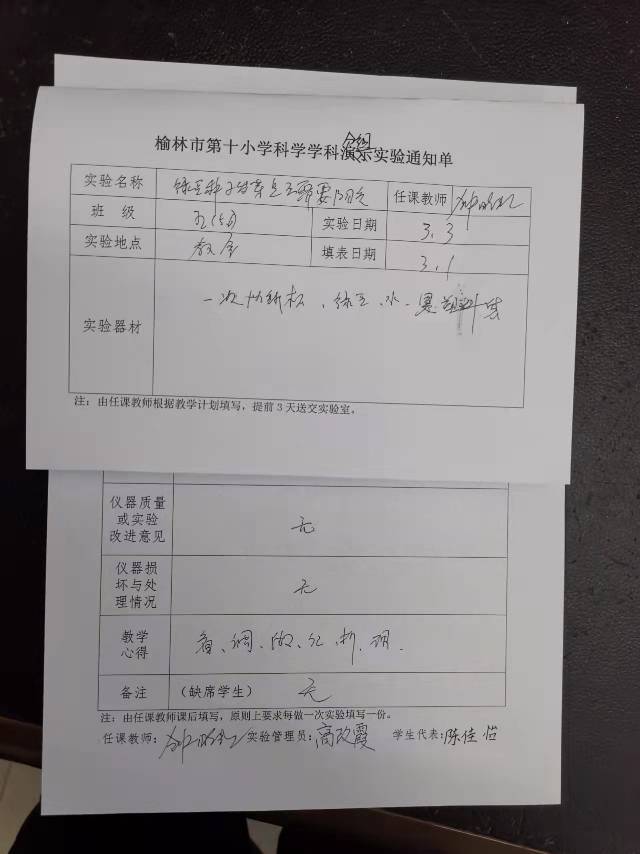 榆林市第十小学科学学科演示实验通知单
分组
实验名称 绿豆种子发芽是否需要阳光 任课教师
班 级 五(5) 实验日期 3.3
实验地点 教室 填表日期 3.1
实验器材 一次性纸杯、绿豆、水、黑塑料袋
注：由任课教师根据教学计划填写，提前3天送交实验室。
仪器质量
或实验
改进意见 无
仪器损
坏与处
理情况 无
教学
心得
备注 （缺席学生） 无
注：由任课教师课后填写，原则上要求每做一次实验填写一份。
任课教师： 实验管理员：高改霞 学生代表：陈佳怡